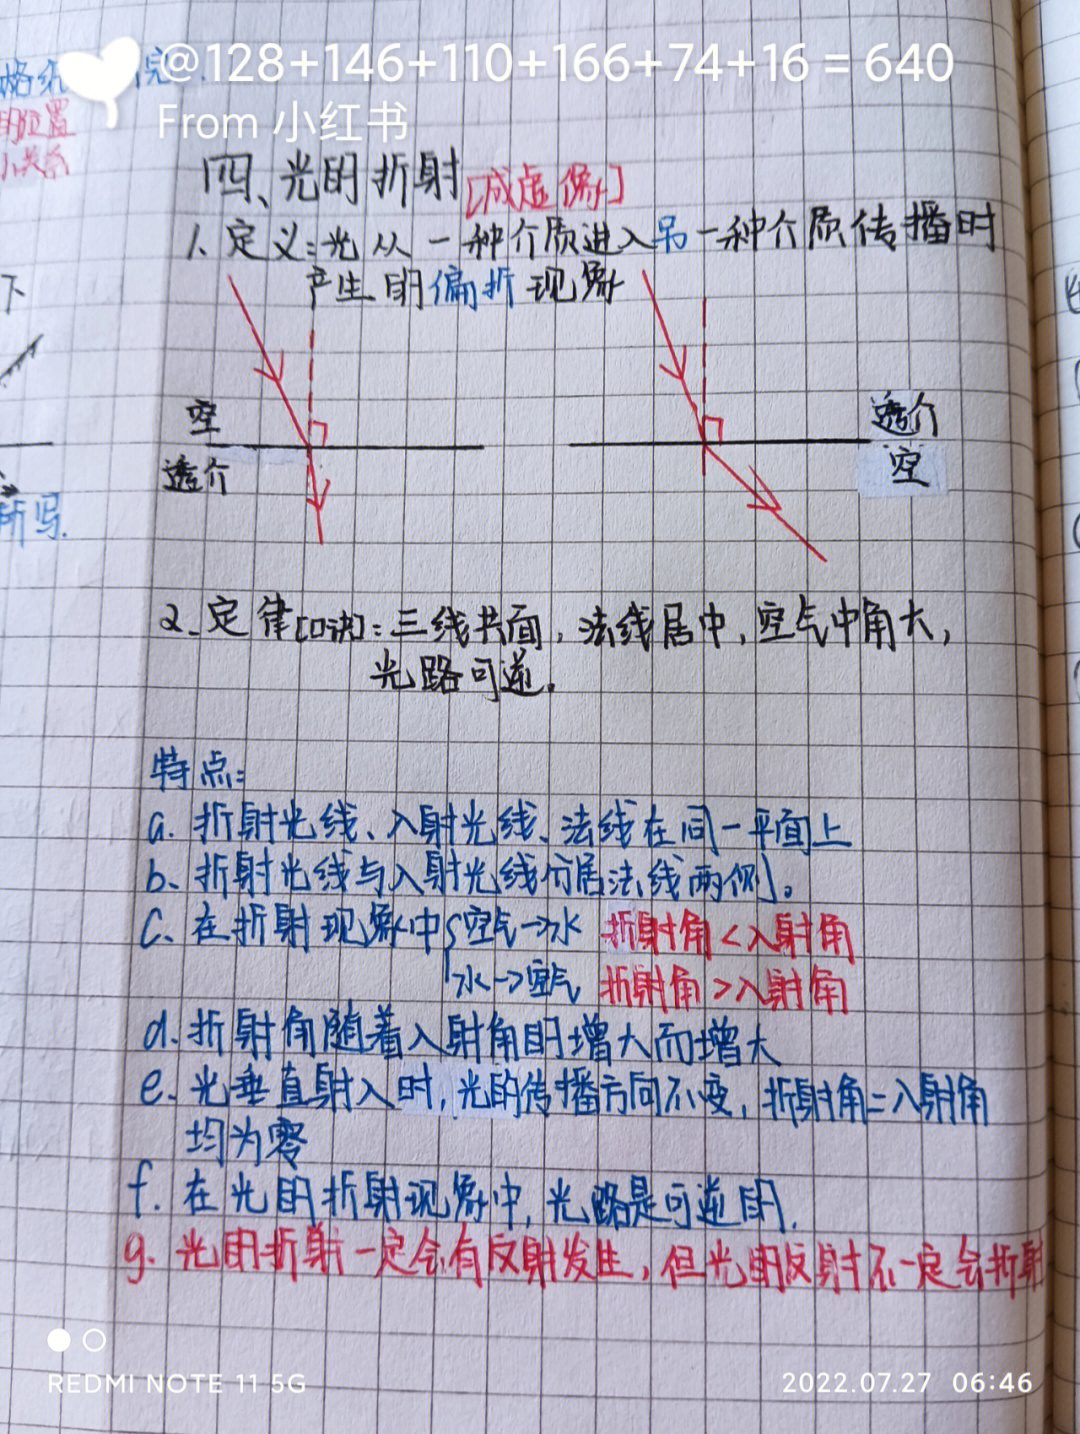 @128+146+110+166+74+16 = 640
From 小红书
四、光的折射[成虚像]
1、定义:光从一种介质进入另一种介质传播时
产生的偏折现象
空
透介
透介
空
2、定律[口诀]:三线共面,法线居中,空气中角大,
光路可逆.
特点:
a. 折射光线、入射光线、法线在同一平面上
b、折射光线与入射光线分居法线两侧。
c、在折射现象中{空气→水 折射角<入射角
水→空气 折射角>入射角
d.折射角随着入射角的增大而增大
e、光垂直射入时,光的传播方向不变,折射角=入射角
均为零
f. 在光的折射现象中,光路是可逆的.
g. 光的折射一定会有反射发生,但光的反射不一定会折射
的位置
所写.
REDMI NOTE 11 5G
2022.07.27 06:46